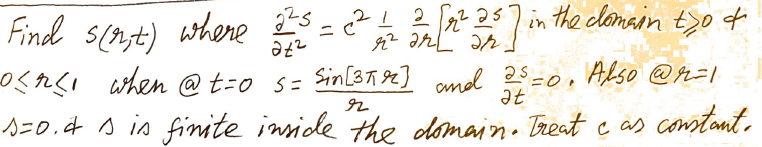 Find s(r,t) where ∂²s/∂t² = c² 1/r² ∂/∂r [r² ∂s/∂r] in the domain t≥0 &
0≤r≤1 when @ t=0 s= Sin[3πr]/r and ∂s/∂t=0. Also @r=1
s=0. & s is finite inside the domain. Treat c as constant.